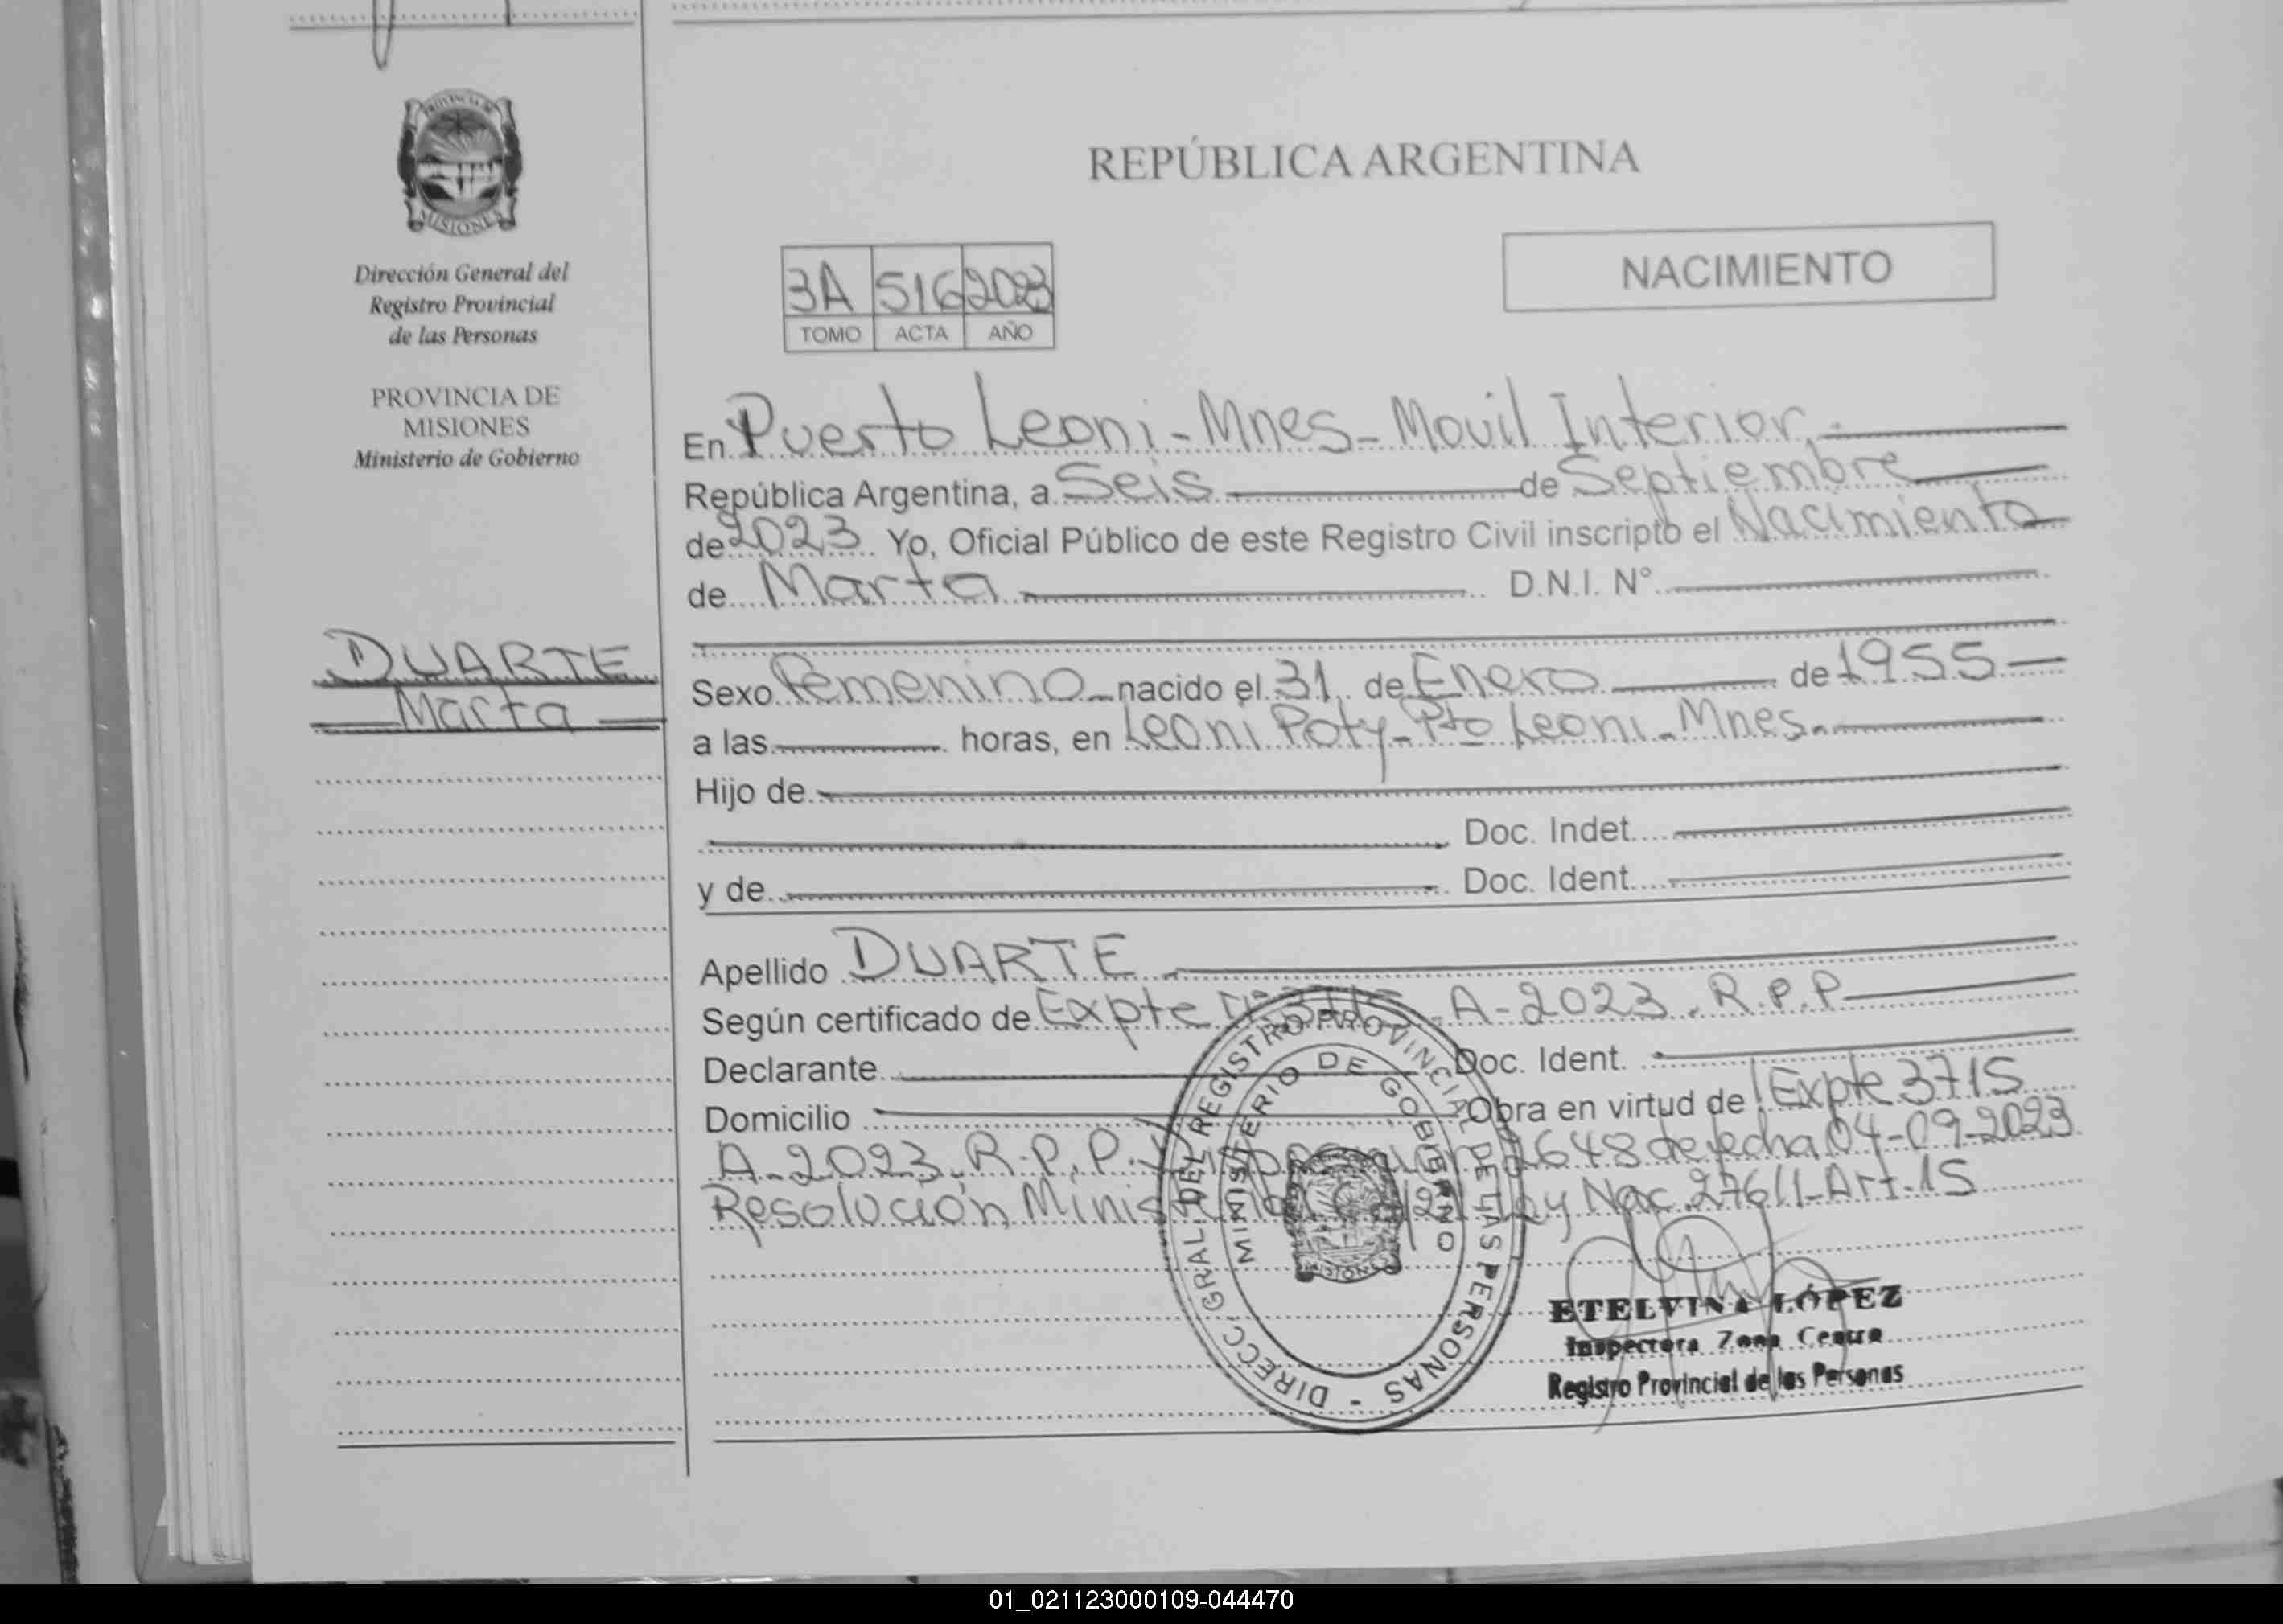 PROVINCIA DE
MISIONES
Dirección General del
Registro Provincial
de las Personas
PROVINCIA DE
MISIONES
Ministerio de Gobierno
DUARTE
Marta
REPÚBLICA ARGENTINA
NACIMIENTO
3A 516 2023
TOMO ACTA AÑO
En Puerto Leoni - Mnes - Movil Interior.-
República Argentina, a Seis de Septiembre
de 2023 Yo, Oficial Público de este Registro Civil inscripto el Nacimiento
de Marta D.N.I. N°
Sexo Femenino nacido el 31 de Enero de 1955
a las horas, en Leoni Poty - Pto Leoni - Mnes.
Hijo de
Doc. Indet.
y de Doc. Ident.
Apellido DUARTE
Según certificado de Expte N° 3715 - A - 2023. R.P.P
Declarante Doc. Ident.
Domicilio Obra en virtud de Expte 3715
A-2023. R.P.P. y 2648 de fecha 04-09-2023
Resolución Ministerial Ley Nac. 27611-Art.15
DIRECC. GRAL. DEL REGISTRO PROVINCIAL DE LAS PERSONAS -
MINISTERIO DE GOBIERNO
MISIONES
ETELVINA LÓPEZ
Inspectora Zona Centro
Registro Provincial de las Personas
01_021123000109-044470